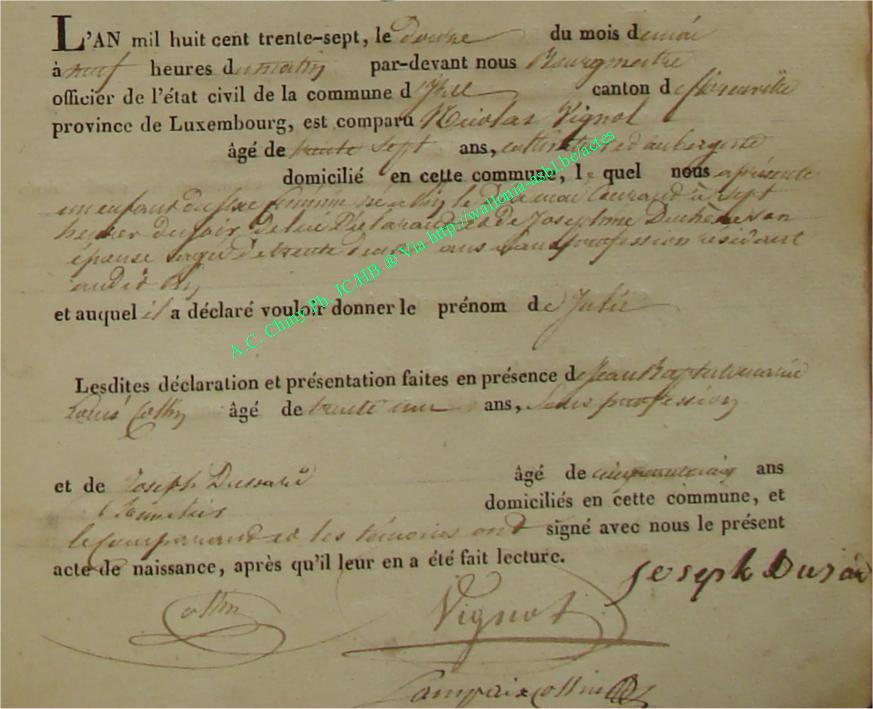 L'AN mil huit cent trente-sept, le douze du mois de mai
à neuf heures du matin par-devant nous Bourgmestre
officier de l'état civil de la commune d canton de florenville
province de Luxembourg, est comparu Nicolas Vignol
âgé de trente sept ans, cultivateur et aubergiste
domicilié en cette commune, le quel nous a présenté
un enfant du sexe féminin né le de mai courant à sept
heures du soir, de lui Déclarant et de Joséphine Duchêne son
épouse agée de trente ans sans profession résidant
audit
et auquel il a déclaré vouloir donner le prénom de Julie
Lesdites déclaration et présentation faites en présence de Jean Baptiste
Louis Collin âgé de trente ans, sans profession
et de Joseph Dussard âgé de ans
domiciliés en cette commune, et
le comparant et les témoins ont signé avec nous le présent
acte de naissance, après qu'il leur en a été fait lecture.
Joseph Dusár
Collin Vignol
A.C. Chiny Ph. JCHB ® Via http://wallonia-asbl.be/actes